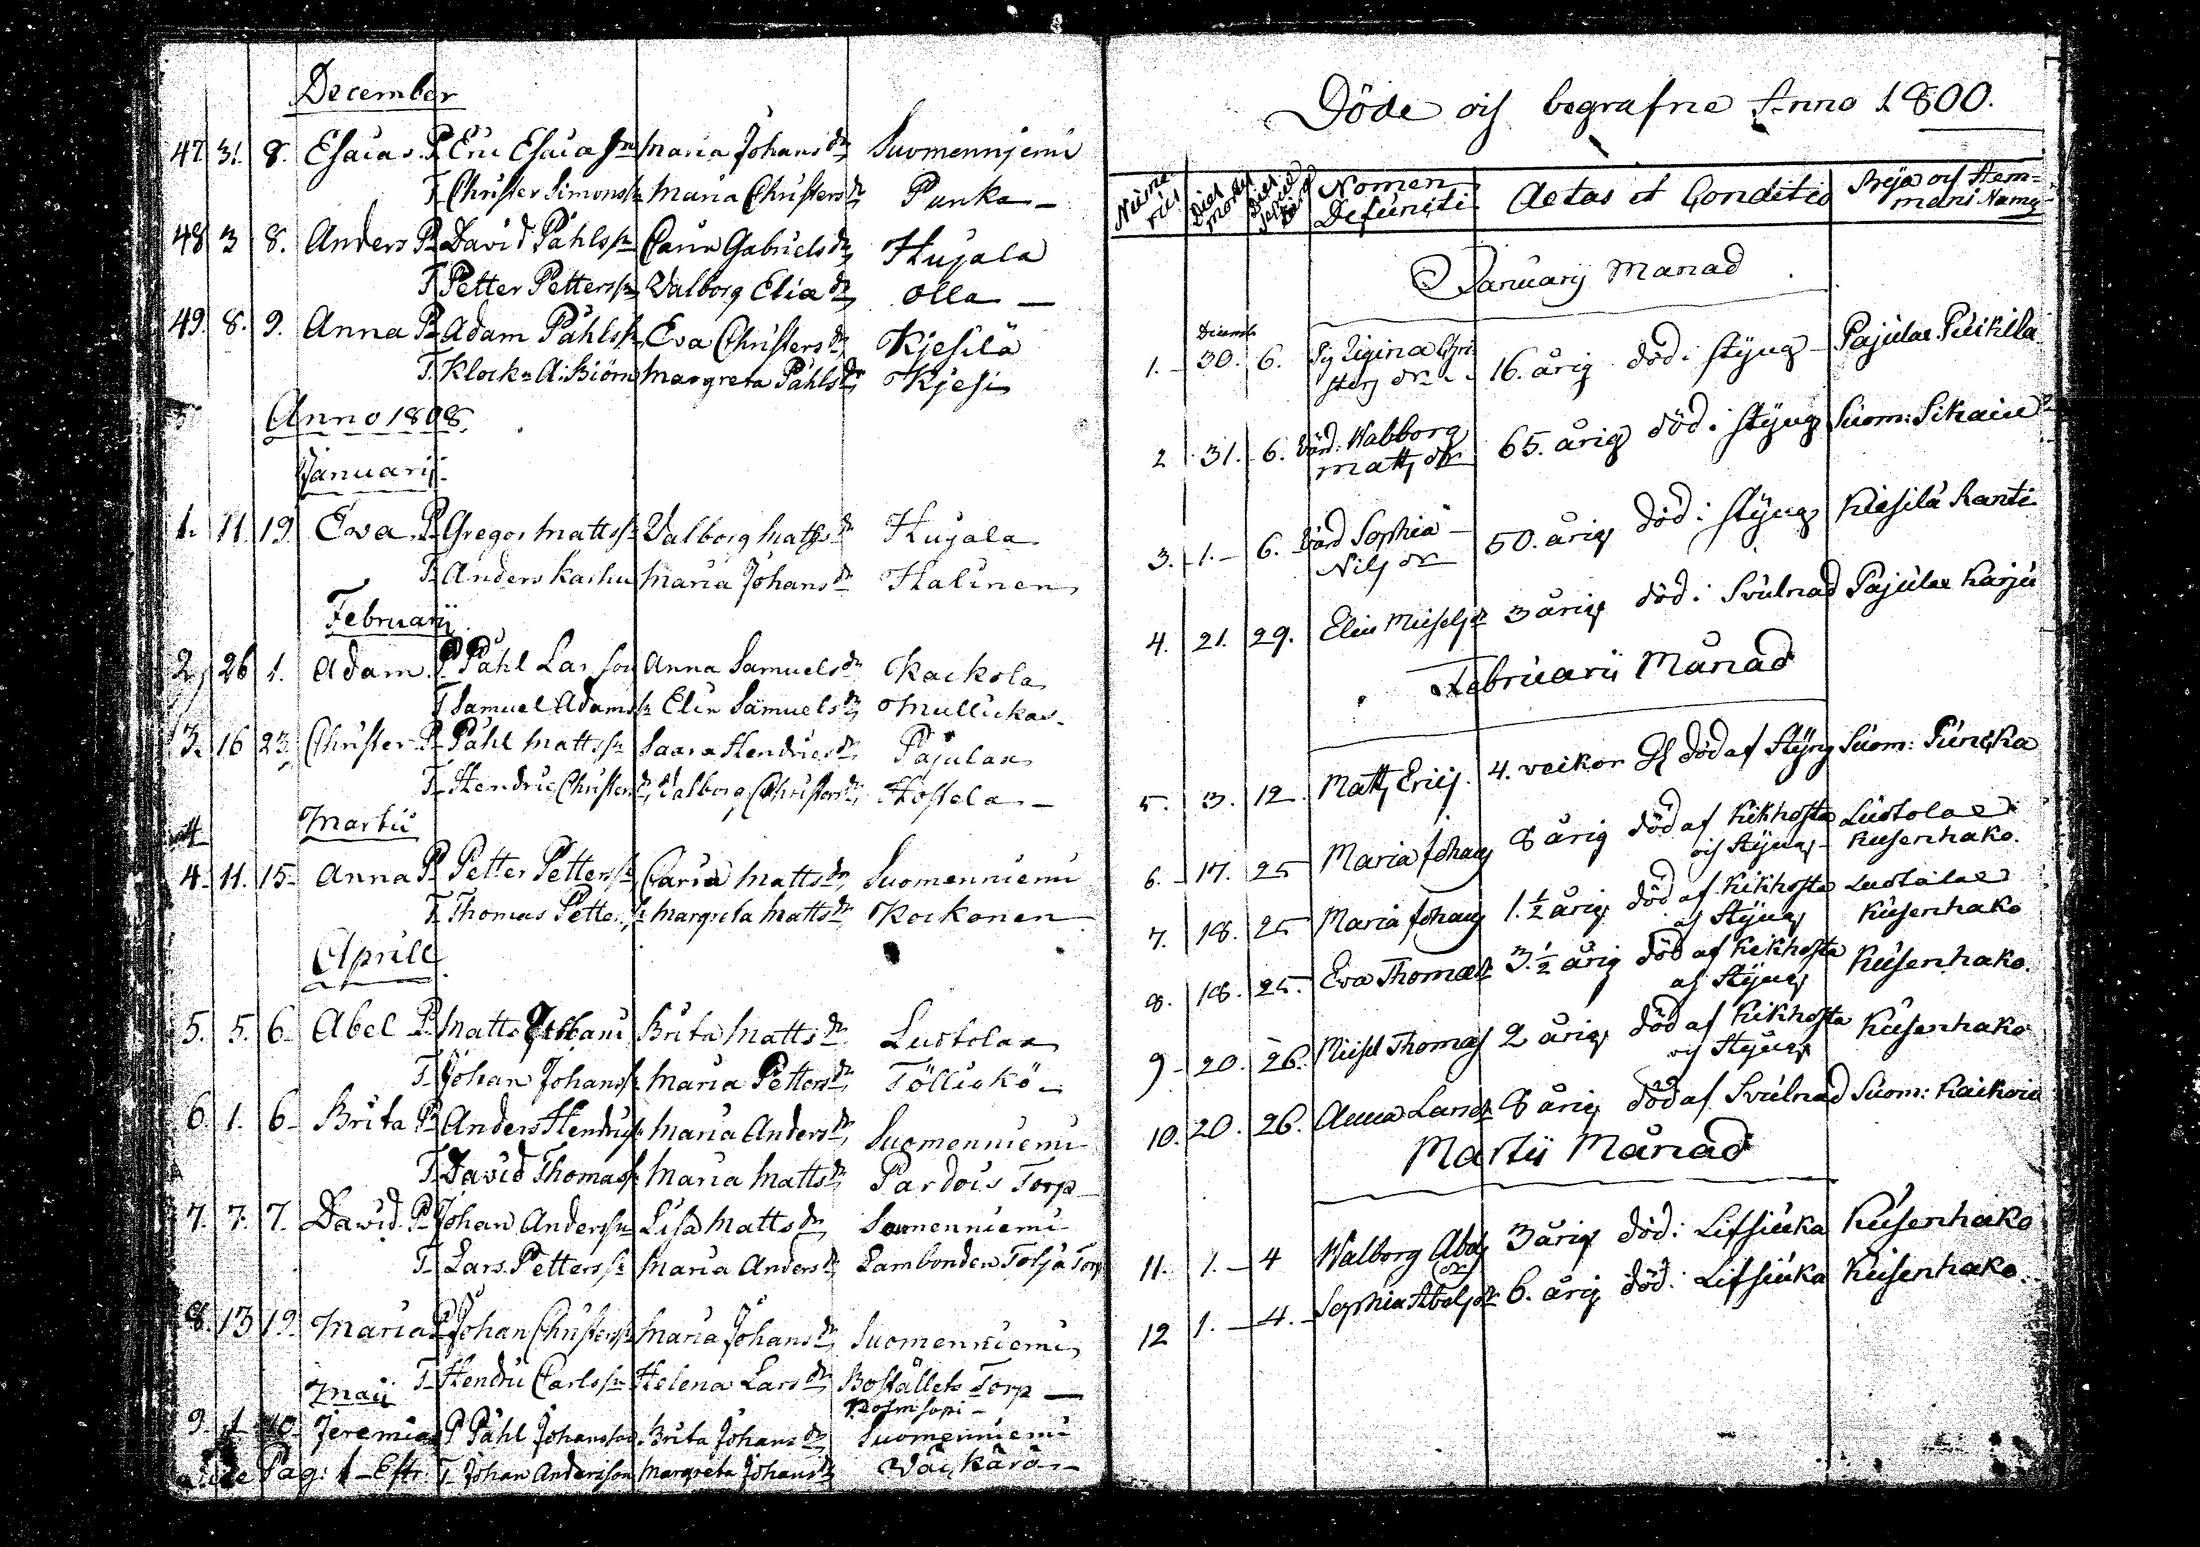 December
47. 31. 8. Esaias. P. Eric Esaia sn Maria Johans dr Suomenniemi
T. Christer Simons sn Maria Christers dr Punka
48 3 8. Anders P. David Påhls sn Carin Gabriels dr Hujala
T. Petter Petters sn Valborg Eliæ dr Olla
49. 8. 9. Anna P. Adam Påhls sn Eva Christers dr Kjesilä
T. Klock: A: Biörn Margreta Påhls dr Kjesi
Anno 1808.
Januarij
1. 11. 19. Eva P. Gregor Matts sn Valborg Matts dr Hujala
T. Anders Karhu Maria Johans dr Halinen
Februarij
2. 26 1. Adam. P. Påhl Larson Anna Samuels dr Kackola
T. Samuel Adams sn Elin Samuels dr Mullickas
3. 16 23. Christer P. Påhl Matts sn Saara Hendrics dr Pajulax
T. Hendric Christers sn Valborg Christers dr Hostela
4
Martii
4. 11. 15. Anna P. Petter Petters sn Carin Matts dr Suomenniemi
T. Thomas Petters sn Margreta Matts dr Kockonen
Aprill
5. 5. 6. Abel P. Matts Brita Matts dr Lustolax
T. Johan Johans sn Maria Petters dr Töllickö
6. 1. 6. Brita P. Anders Hendrics sn Maria Anders dr Suomenniemi
T. David Thomas sn Maria Matts dr Pardois Torp
7. 7. 7. David. P. Johan Anders sn Lisa Matts dr Suomenniemi
T. Lars Petters sn Maria Anders dr Lambonden Tolja Torp
8. 13 19. Maria P. Johan Christers sn Maria Johans dr Suomenniemi
T. Hendric Carls sn Helena Lars dr Boställets Torp
Maij
9. 1 10. Jeremias P Påhl Johansson Brita Johans dr Suomenniemi
Pag: 1 Eftr. T. Johan Andersson Margreta Johans dr Väckärä
Döde och begrafne Anno 1800.
Nume rus Dies mortis Dies sepul turæ Nomen Defuncti Aetas et Conditio Byja och Hem= mans Namn
Januarij Månad
Decemb
1. 30. 6. Pig Regina Chri sters dr 16. årig död i styng Pajulax Pückilä
2 31. 6. Värd. Walborg Matts dr 65. årig död i styng Suom: Sikain
3. 1. 6. Värd Sophia Nils dr 50. årig död i styng Kiesilä Ranti
4. 21. 29. Elin Michels dr 3 årig död i Svulnad Pajulax Karju
Februarii Månad
5. 3. 12. Matts Erics. 4. veckor Gl död af Styng Suom: Puncka
6. 17. 25 Maria Johans 8 årig död af Kikhosta och Styng Lustolax Kusenhako.
7. 18. 25 Maria Johans 1. ½ årig död af Kikhosta och Styng Lustolax Kusenhako
8. 18. 25. Eva Thomæ dr 3. ½ årig död af Kikhosta och Styng Kusenhako.
9 20. 26. Michel Thomas 2 årig död af Kikhosta och Styng Kusenhako
10. 20. 26. Anna Lars dr 8 årig död af Svulnad Suom: Kaikoin
Martii Månad
11. 1. 4 Walborg Abels dr 3 årig död i Lifsiuka Kusenhako
12 1. 4. Sophia Abels dr 6. årig död i Lifsiuka Kusenhako.